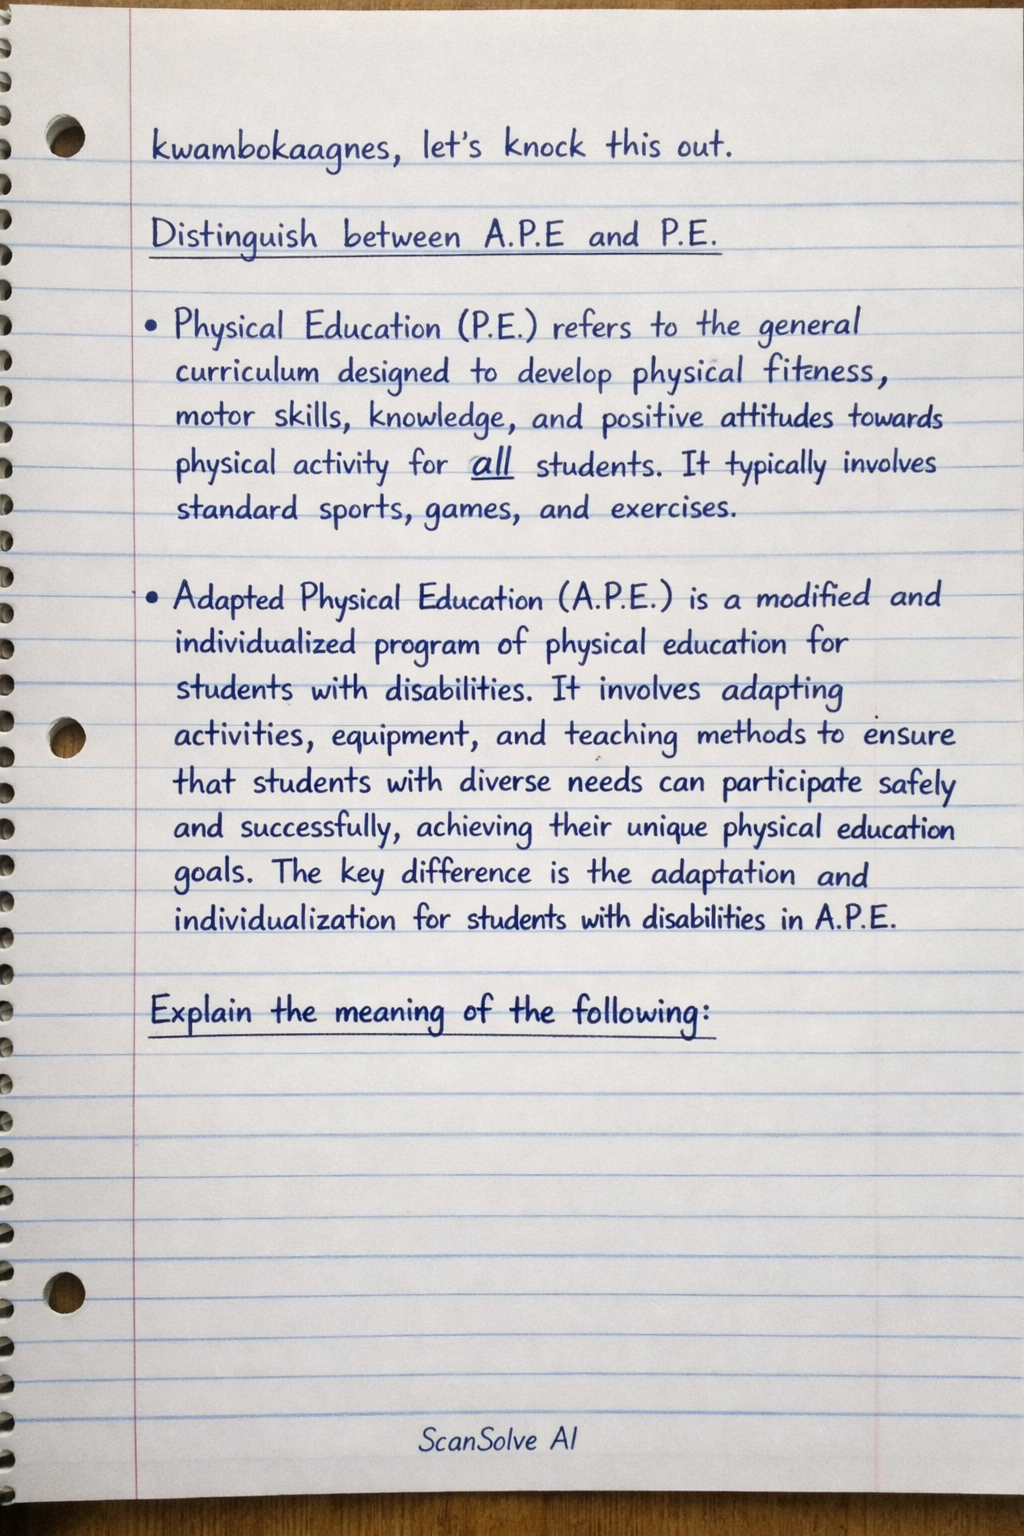 kwambokaagnes, let's knock this out.
Distinguish between A.P.E and P.E.
• Physical Education (P.E.) refers to the general
curriculum designed to develop physical fitness,
motor skills, knowledge, and positive attitudes towards
physical activity for all students. It typically involves
standard sports, games, and exercises.
• Adapted Physical Education (A.P.E.) is a modified and
individualized program of physical education for
students with disabilities. It involves adapting
activities, equipment, and teaching methods to ensure
that students with diverse needs can participate safely
and successfully, achieving their unique physical education
goals. The key difference is the adaptation and
individualization for students with disabilities in A.P.E.
Explain the meaning of the following:
ScanSolve AI